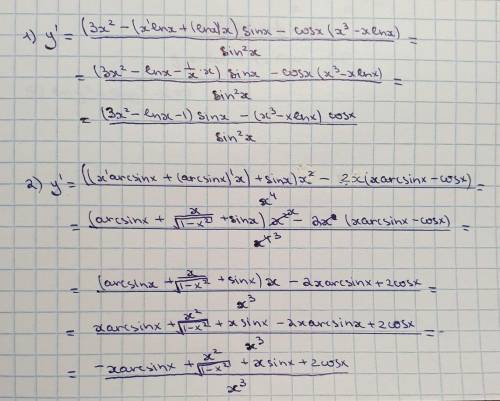 1) y' = ((3x² - (x'lnx + (lnx)'x) sinx - cosx (x³ - xlnx)) / sin²x =
= ((3x² - lnx - 1/x · x) sinx - cosx (x³ - xlnx)) / sin²x =
= ((3x² - lnx - 1) sinx - (x³ - xlnx) cosx) / sin²x
2) y' = (((x'arcsinx + (arcsinx)'x) + sinx)x² - 2x(xarcsinx - cosx)) / x⁴ =
= ((arcsinx + x/√(1-x²) + sinx) x² - 2x (xarcsinx - cosx)) / x⁴ ³ =
= ((arcsinx + x/√(1-x²) + sinx) x - 2xarcsinx + 2cosx) / x³ =
= (xarcsinx + x²/√(1-x²) + xsinx - 2xarcsinx + 2cosx) / x³ =
= (-xarcsinx + x²/√(1-x²) + xsinx + 2cosx) / x³